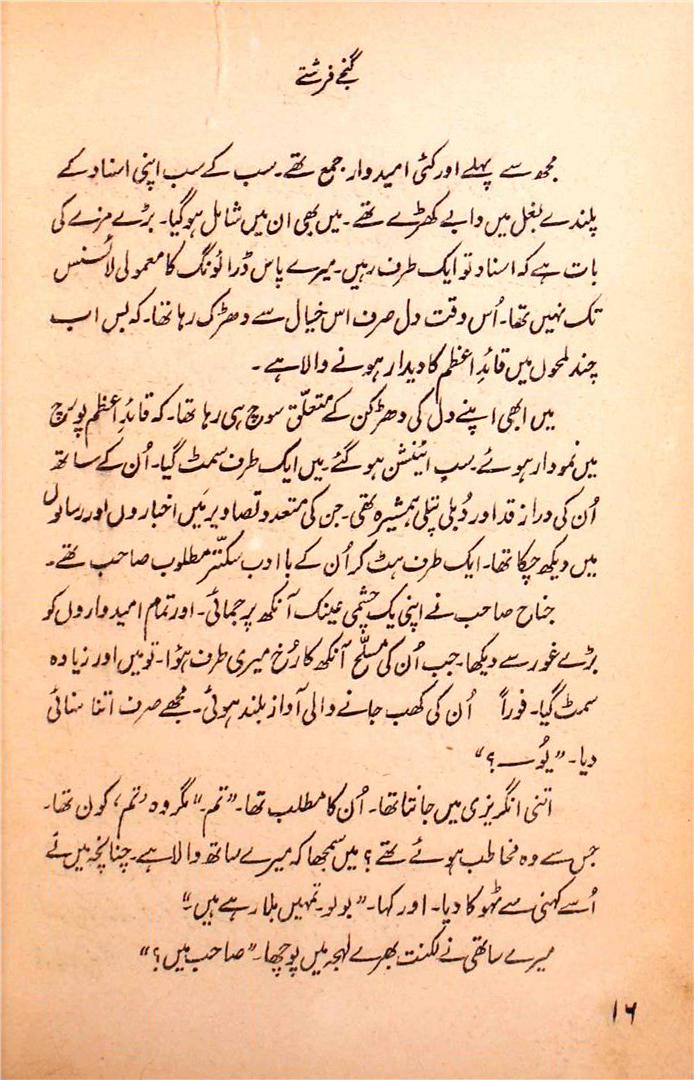 گنجے فرشتے
مجھ سے پہلے اور کئی امیدوار جمع تھے۔ سب کے سب اپنی اسناد کے
پلندے بغل میں دابے کھڑے تھے۔ میں بھی ان میں شامل ہو گیا۔ بڑے مزے کی
بات ہے کہ اسناد تو ایک طرف رہیں۔ میرے پاس ڈرائونگ کا معمولی لائسنس
تک نہیں تھا۔ اُس وقت دل صرف اس خیال سے دھڑک رہا تھا۔ کہ بس اب
چند لمحوں میں قائدِ اعظم کا دیدار ہونے والا ہے۔
میں ابھی اپنے دل کی دھڑکن کے متعلّق سوچ ہی رہا تھا۔ کہ قائدِ اعظم پورچ
میں نمودار ہوئے۔ سب اٹینشن ہو گئے۔ میں ایک طرف سمٹ گیا۔ اُن کے ساتھ
اُن کی دراز قد اور دُبلی پتلی ہمشیرہ تھی۔ جن کی متعدد تصاویر مَیں اخباروں اور رسالوں
میں دیکھ چکا تھا۔ ایک طرف ہٹ کر اُن کے باادب سکتّر مطلوب صاحب تھے۔
جناح صاحب نے اپنی یک چشمی عینک آنکھ پر جمائی۔ اور تمام امیدواروں کو
بڑے غور سے دیکھا۔ جب اُن کی مسلّح آنکھ کا رُخ میری طرف ہؤا۔ تو میں اور زیادہ
سمٹ گیا۔ فوراً اُن کی کھب جانے والی آواز بلند ہوئی۔ مجھے صرف اتنا سنائی
دیا۔ ”یُو۔۔ ؟“
اتنی انگریزی میں جانتا تھا۔ اُن کا مطلب تھا۔ ”تم“ مگر وہ ’تم‘ کون تھا۔
جس سے وہ مخاطب ہوئے تھے؟ میں سمجھا کہ میرے ساتھ والا ہے۔ چنانچہ میں نے
اُسے کہنی سے ٹھوکا دیا۔ اور کہا۔ ”بولو۔ تمہیں بلا رہے ہیں۔“
میرے ساتھی نے لکنت بھرے لہجہ میں پوچھا۔ ”صاحب میں؟“
۱۶